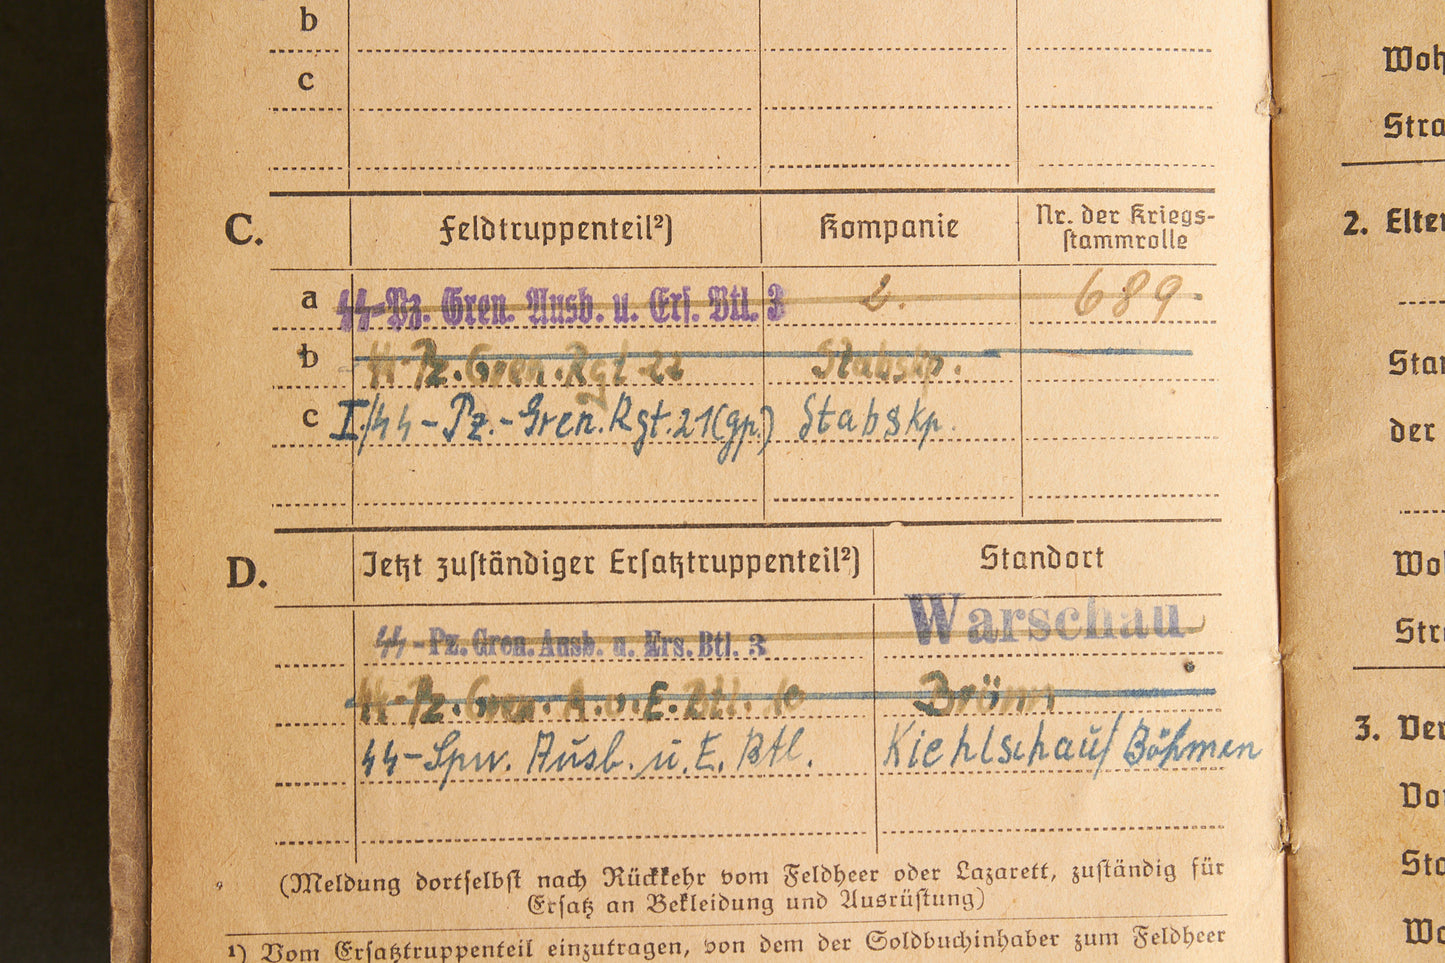 b
c
C. Feldtruppenteil²) Kompanie Nr. der Kriegs-
stammrolle
a ᛋᛋ-Pz. Gren. Ausb. u. Ers. Btl. 3 2. 689.
b ᛋᛋ-Pz. Gren. Rgt 22 Stabskp.
c I./ᛋᛋ-Pz.-Gren. Rgt. 21 (gp.) Stabskp.
D. Jetzt zuständiger Ersatztruppenteil²) Standort
ᛋᛋ-Pz. Gren. Ausb. u. Ers. Btl. 3 Warschau
ᛋᛋ-Pz. Gren. A. u. E. Btl. 10 Brünn
ᛋᛋ-Spw. Ausb. u. E. Btl. Kiehlschau/Böhmen
(Meldung dortselbst nach Rückkehr vom Feldheer oder Lazarett, zuständig für
Ersatz an Bekleidung und Ausrüstung)
¹) Vom Ersatztruppenteil einzutragen, von dem der Soldbuchinhaber zum Feldheer
Woh
Stra
2. Elter
Stan
der
Wo
Str
3. Ver
Vor
Sta
Wo